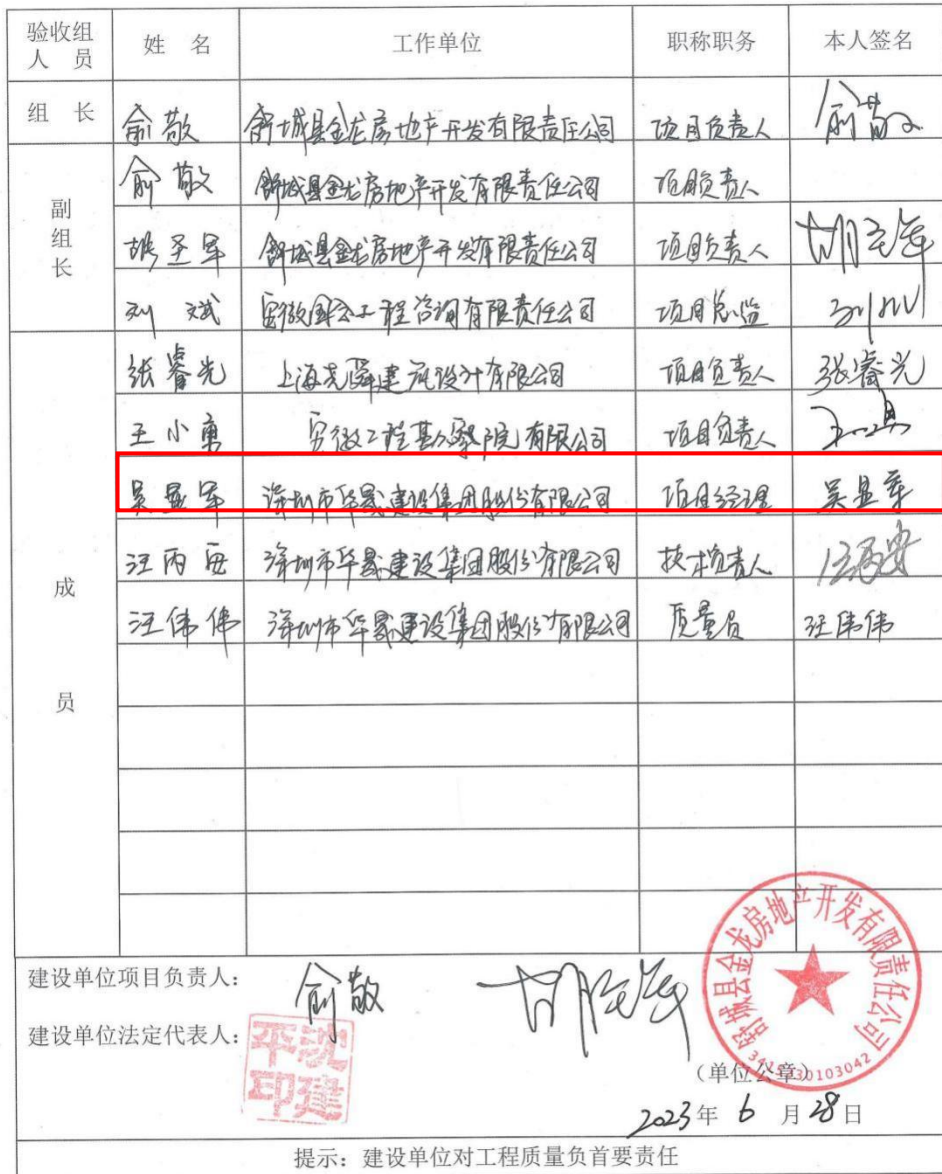 验收组人员 姓 名 工作单位 职称职务 本人签名
组 长 俞敬 舒城县金龙房地产开发有限责任公司 项目负责人 俞敬
副组长 俞敬 舒城县金龙房地产开发有限责任公司 项目负责人
胡圣军 舒城县金龙房地产开发有限责任公司 项目负责人 胡圣军
刘斌 安徽国公工程咨询有限责任公司 项目总监 刘斌
成员 张睿光 上海尧舜建筑设计有限公司 项目负责人 张睿光
王小勇 安徽工程勘察院有限公司 项目负责人 王小勇
吴显军 深圳市华晟建设集团股份有限公司 项目经理 吴显军
汪丙安 深圳市华晟建设集团股份有限公司 技术负责人 汪丙安
汪伟伟 深圳市华晟建设集团股份有限公司 质量员 汪伟伟
建设单位项目负责人: 俞敬 胡圣军
建设单位法定代表人: 沈建平印
舒城县金龙房地产开发有限责任公司
(单位公章)
2023年 6 月 28 日
提示:建设单位对工程质量负首要责任